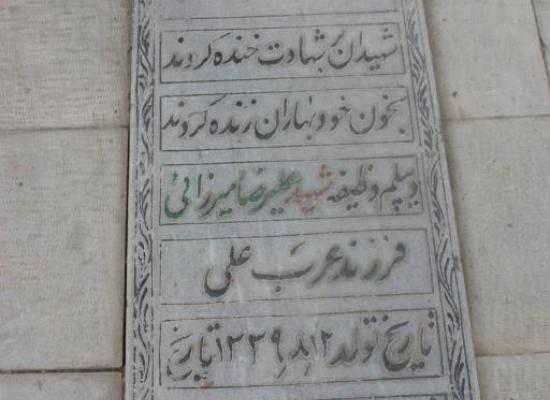 شهیدان بر شهادت خنده کردند
بخون خود بهاران زنده کردند
دیپلم وظیفه شهید علیرضا میرزائی
فرزند عرب علی
تاریخ تولد ۱۳۳۹٫۸٫۱۲ تاریخ